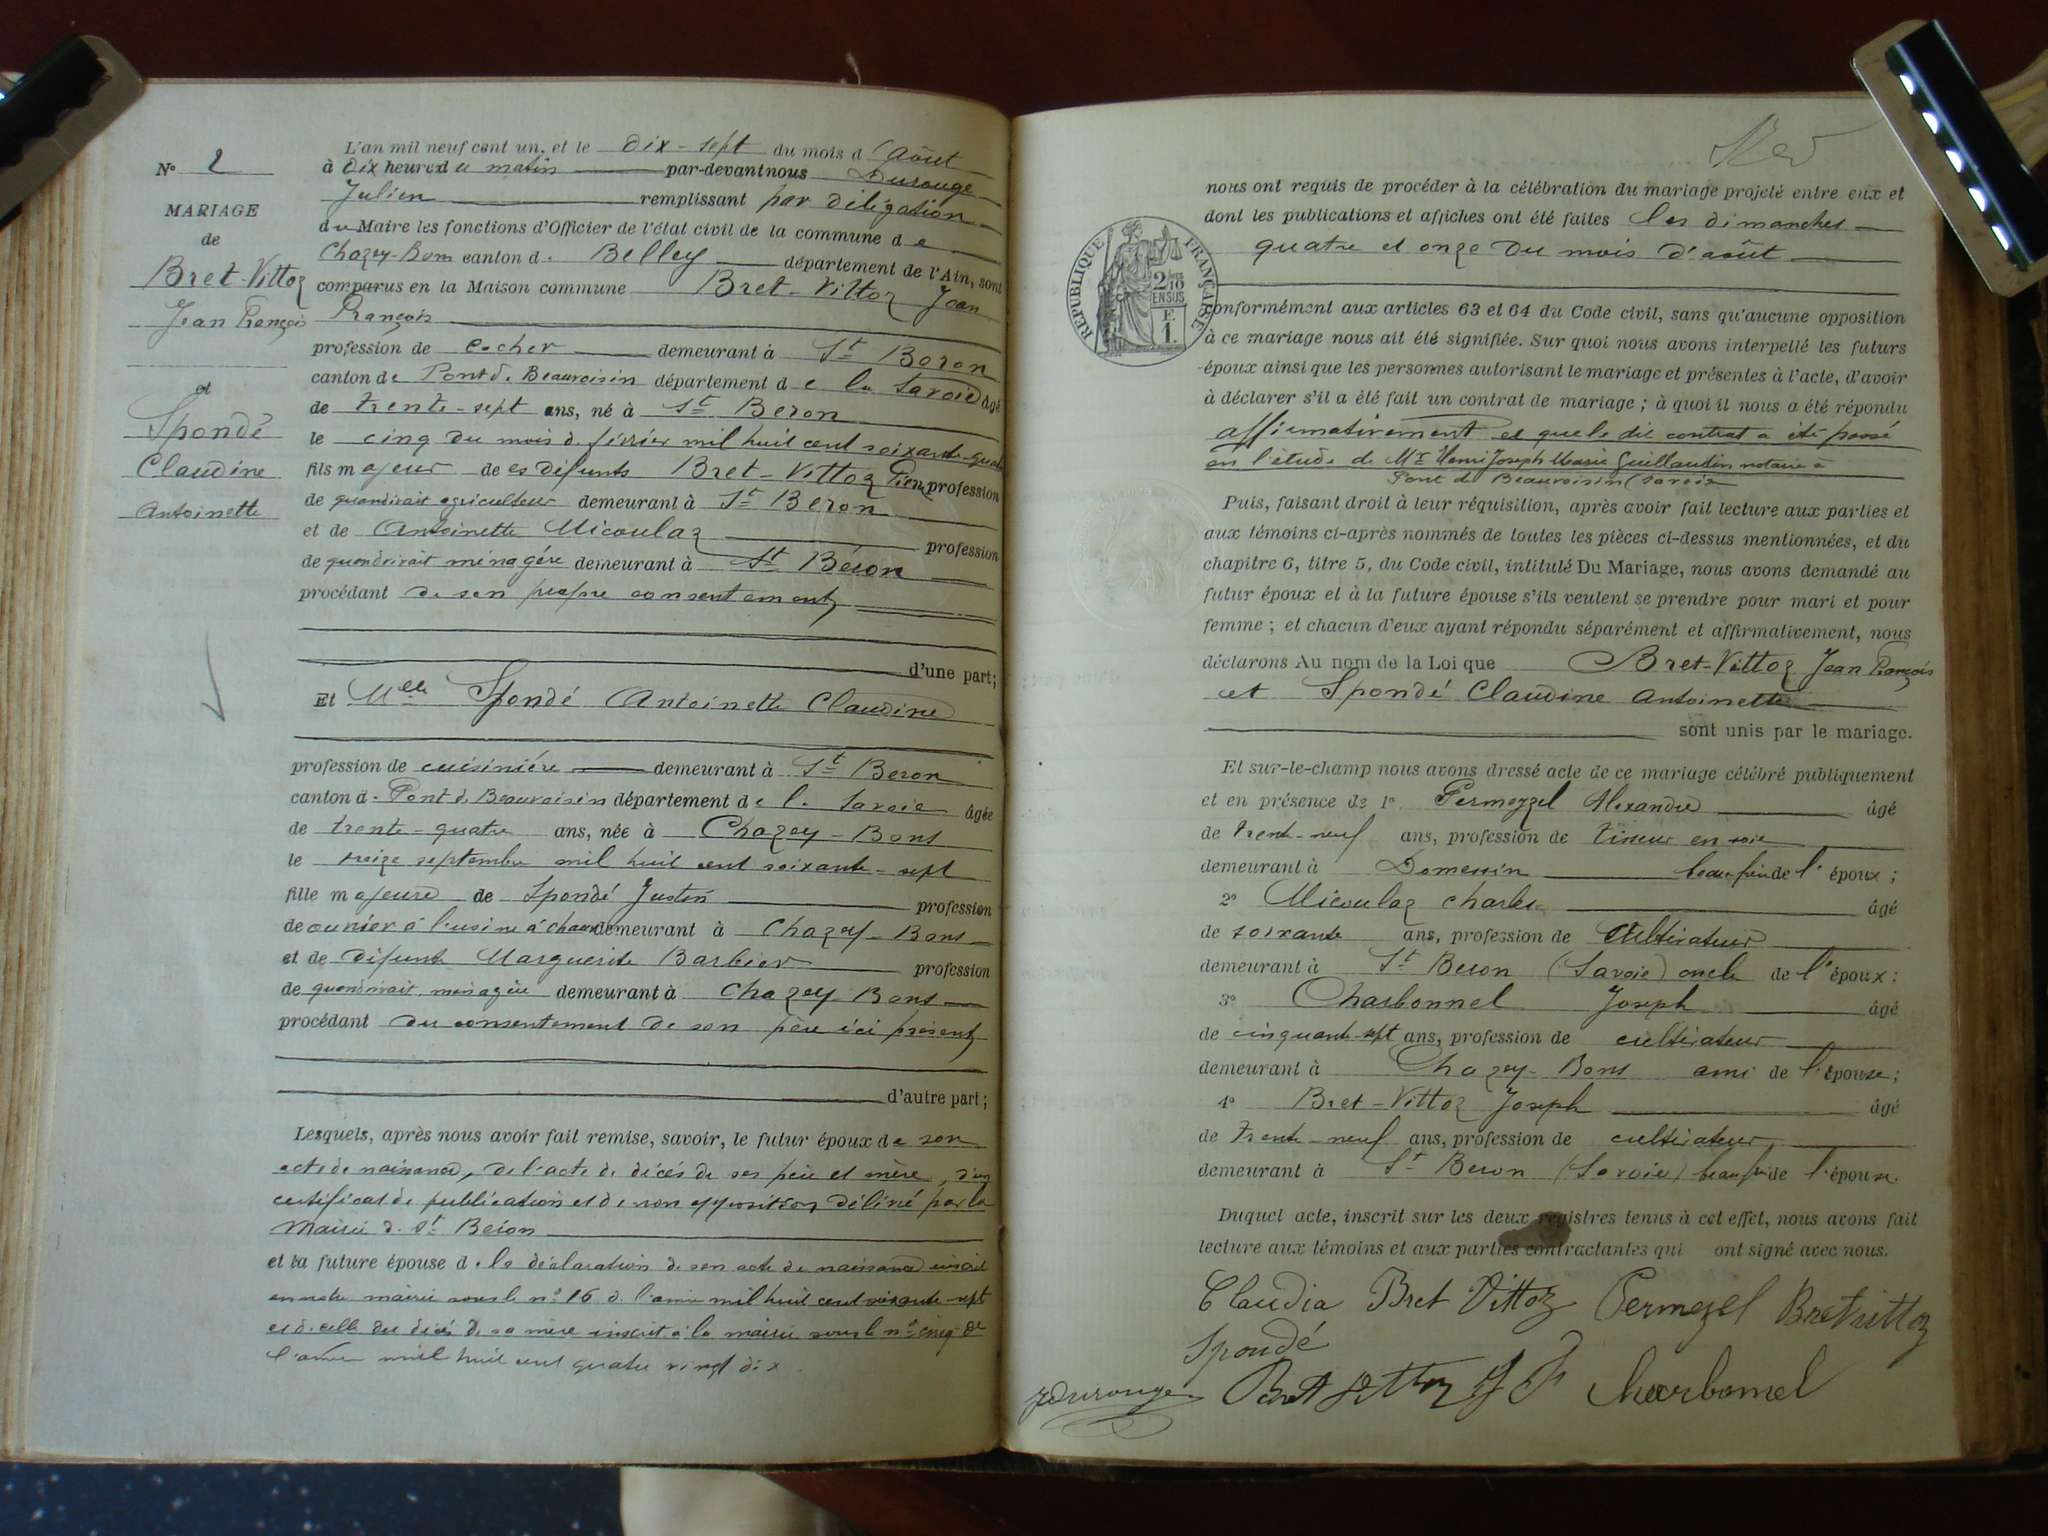 N° 2
MARIAGE
de
Bret-Vittoz
Jean François
et
Spondé
Claudine
Antoinette
L'an mil neuf cent un, et le dix-sept du mois d'août
à dix heures du matin par-devant nous Durouge
Julien remplissant par délégation
du Maire les fonctions d'Officier de l'état civil de la commune de
Chazey-Bons canton de Belley département de l'Ain, sont
comparus en la Maison commune Bret-Vittoz Jean
François
profession de cocher demeurant à St Beron
canton de Pont de Beauvoisin département de la Savoie âgé
de trente-sept ans, né à St Beron
le cinq du mois de février mil huit cent soixante-quatre
fils majeur de es défunts Bret-Vittoz Pierre profession
de quand vivait agriculteur demeurant à St Beron
et de Antoinette Micoulaz profession
de quand vivait ménagère demeurant à St Béron
procédant de son propre consentement
d'une part;
Et Melle Spondé Antoinette Claudine
profession de cuisinière demeurant à St Beron
canton de Pont de Beauvoisin département de la Savoie âgée
de trente-quatre ans, née à Chazey-Bons
le septembre mil huit cent soixante-sept
fille majeure de Spondé Justin profession
de ouvrier à l'usine à chaux demeurant à Chazey-Bons
et de défunte Marguerite Barbier profession
de quand vivait ménagère demeurant à Chazey-Bons
procédant du consentement de son père ici présent
d'autre part;
Lesquels, après nous avoir fait remise, savoir, le futur époux de son
acte de naissance, de l'acte de décès de ses père et mère, d'un
certificat de publication et de non opposition délivré par la
Mairie de St Beron
et la future épouse de la déclaration de son acte de naissance inscrit
en notre mairie sous le n° 16 de l'année mil huit cent soixante-sept
et de celle du décès de sa mère inscrit à la mairie sous le n° cinq de
l'année mil huit cent quatre vingt dix
nous ont requis de procéder à la célébration du mariage projeté entre eux et
dont les publications et affiches ont été faites les dimanches
quatre et onze du mois d'août
REPUBLIQUE FRANÇAISE
2/10 EN SUS
E.
1.
conformément aux articles 63 et 64 du Code civil, sans qu'aucune opposition
à ce mariage nous ait été signifiée. Sur quoi nous avons interpellé les futurs
époux ainsi que les personnes autorisant le mariage et présentes à l'acte, d'avoir
à déclarer s'il a été fait un contrat de mariage; à quoi il nous a été répondu
affirmativement et que le dit contrat a été passé
en l'étude de Me Henri Joseph Marie Guillaudin notaire à
Pont de Beauvoisin (Savoie
Puis, faisant droit à leur réquisition, après avoir fait lecture aux parties et
aux témoins ci-après nommés de toutes les pièces ci-dessus mentionnées, et du
chapitre 6, titre 5, du Code civil, intitulé Du Mariage, nous avons demandé au
futur époux et à la future épouse s'ils veulent se prendre pour mari et pour
femme; et chacun d'eux ayant répondu séparément et affirmativement, nous
déclarons Au nom de la Loi que Bret-Vittoz Jean François
et Spondé Claudine Antoinette
sont unis par le mariage.
Et sur-le-champ nous avons dressé acte de ce mariage célébré publiquement
et en présence de 1° Permezzel Alexandre âgé
de trente-neuf ans, profession de tisseur en soie
demeurant à Domessin beau-frère de l'époux;
2° Micoulaz Charles âgé
de soixante ans, profession de cultivateur
demeurant à St Beron (Savoie) oncle de l'époux;
3° Charbonnel Joseph âgé
de cinquante-sept ans, profession de cultivateur
demeurant à Chazey-Bons ami de l'épouse;
4° Bret-Vittoz Joseph âgé
de trente-neuf ans, profession de cultivateur
demeurant à St Beron (Savoie) beau-fre de l'épouse.
Duquel acte, inscrit sur les deux registres tenus à cet effet, nous avons fait
lecture aux témoins et aux parties contractantes qui ont signé avec nous.
Claudia Bret Vittoz Permezel Bretvittoz
Spondé
JDurouge Bret Vittoz J F Charbonnel